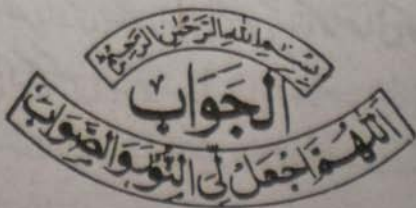 بِسْمِ اللّٰهِ الرَّحْمٰنِ الرَّحِيْمِ
اَلْجَوَابْ
اَللّٰهُمَّ اجْعَلْ لِّیَ النُّوْرَ وَالصَّوَابْ